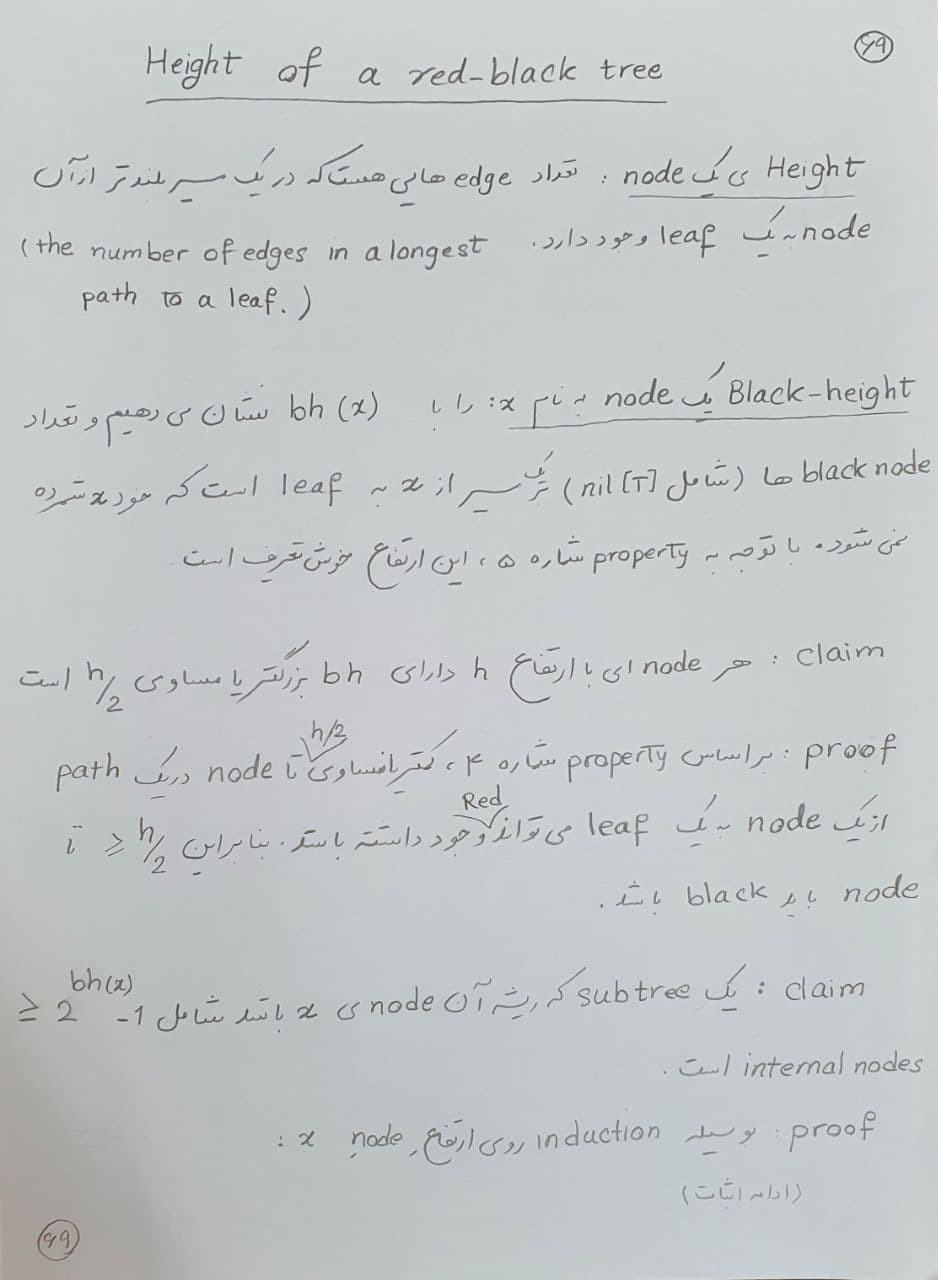 ۶۹
Height of a red-black tree
Height ی یک node : تعداد edge هایی هست که در یک مسیر بلندتر از آن
node به یک leaf وجود دارد. (the number of edges in a longest
path to a leaf.)
Black-height یک node به نام x: را با bh(x) نشان می دهیم و تعداد
black node ها (شامل nil[T]) در یک مسیر از x به leaf است که خود x شمرده
نمی شود. با توجه به property شماره ۵، این ارتفاع خوش تعریف است.
claim : هر node ای با ارتفاع h دارای bh بزرگتر یا مساوی h/2 است
proof : بر اساس property شماره ۴، کمتر یا مساوی h/2 تا node در یک path
از یک node به یک leaf می تواند Red وجود داشته باشد. بنابراین h/2 ≤ تا
node باید black باشد.
claim : یک subtree که ریشه آن node ی x باشد شامل ≥ 2^bh(x) - 1
internal nodes است.
proof : بوسیله induction روی ارتفاع node x :
(ادامه اثبات)
۶۹